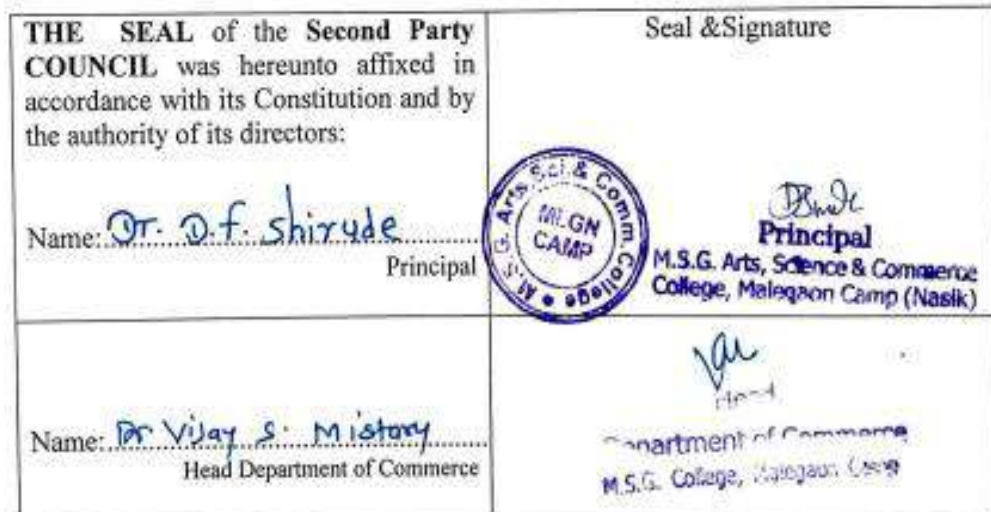 THE SEAL of the Second Party
COUNCIL was hereunto affixed in
accordance with its Constitution and by
the authority of its directors:
Name: Dr. D.F. Shirude
Principal
Seal &Signature
M.S.G. Arts, Sci. & Comm. College
MLGN
CAMP
Principal
M.S.G. Arts, Science & Commerce
College, Malegaon Camp (Nasik)
Name: Dr Vijay S. Mistory
Head Department of Commerce
Head
Department of Commerce
M.S.G. College, Malegaon Camp